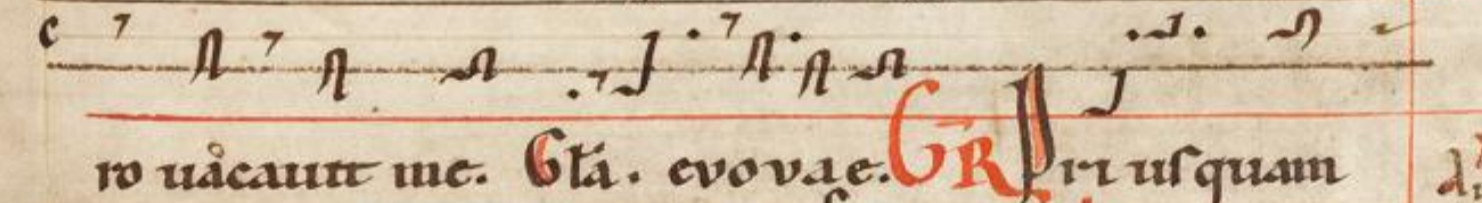 c
ro uacauit me. Gła. evovae. GR Pri usquam